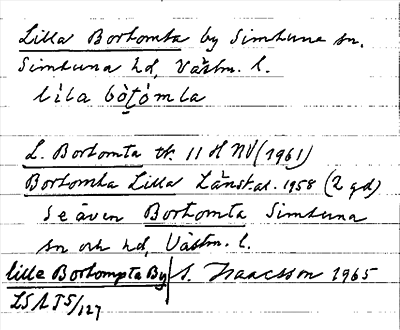 Lilla Bortomta by Simtuna sn.
Simtuna hd, Västm. l.
lìla bòţómla
L. Bortomta tk. 11 H NV (1961)
Bortomta Lilla Länskal. 1958 (2 gd)
Se även Bortomta Simtuna
sn och hd, Västm. l.
lille Bortompta By S. Isaacsson 1965
LSA T5/127